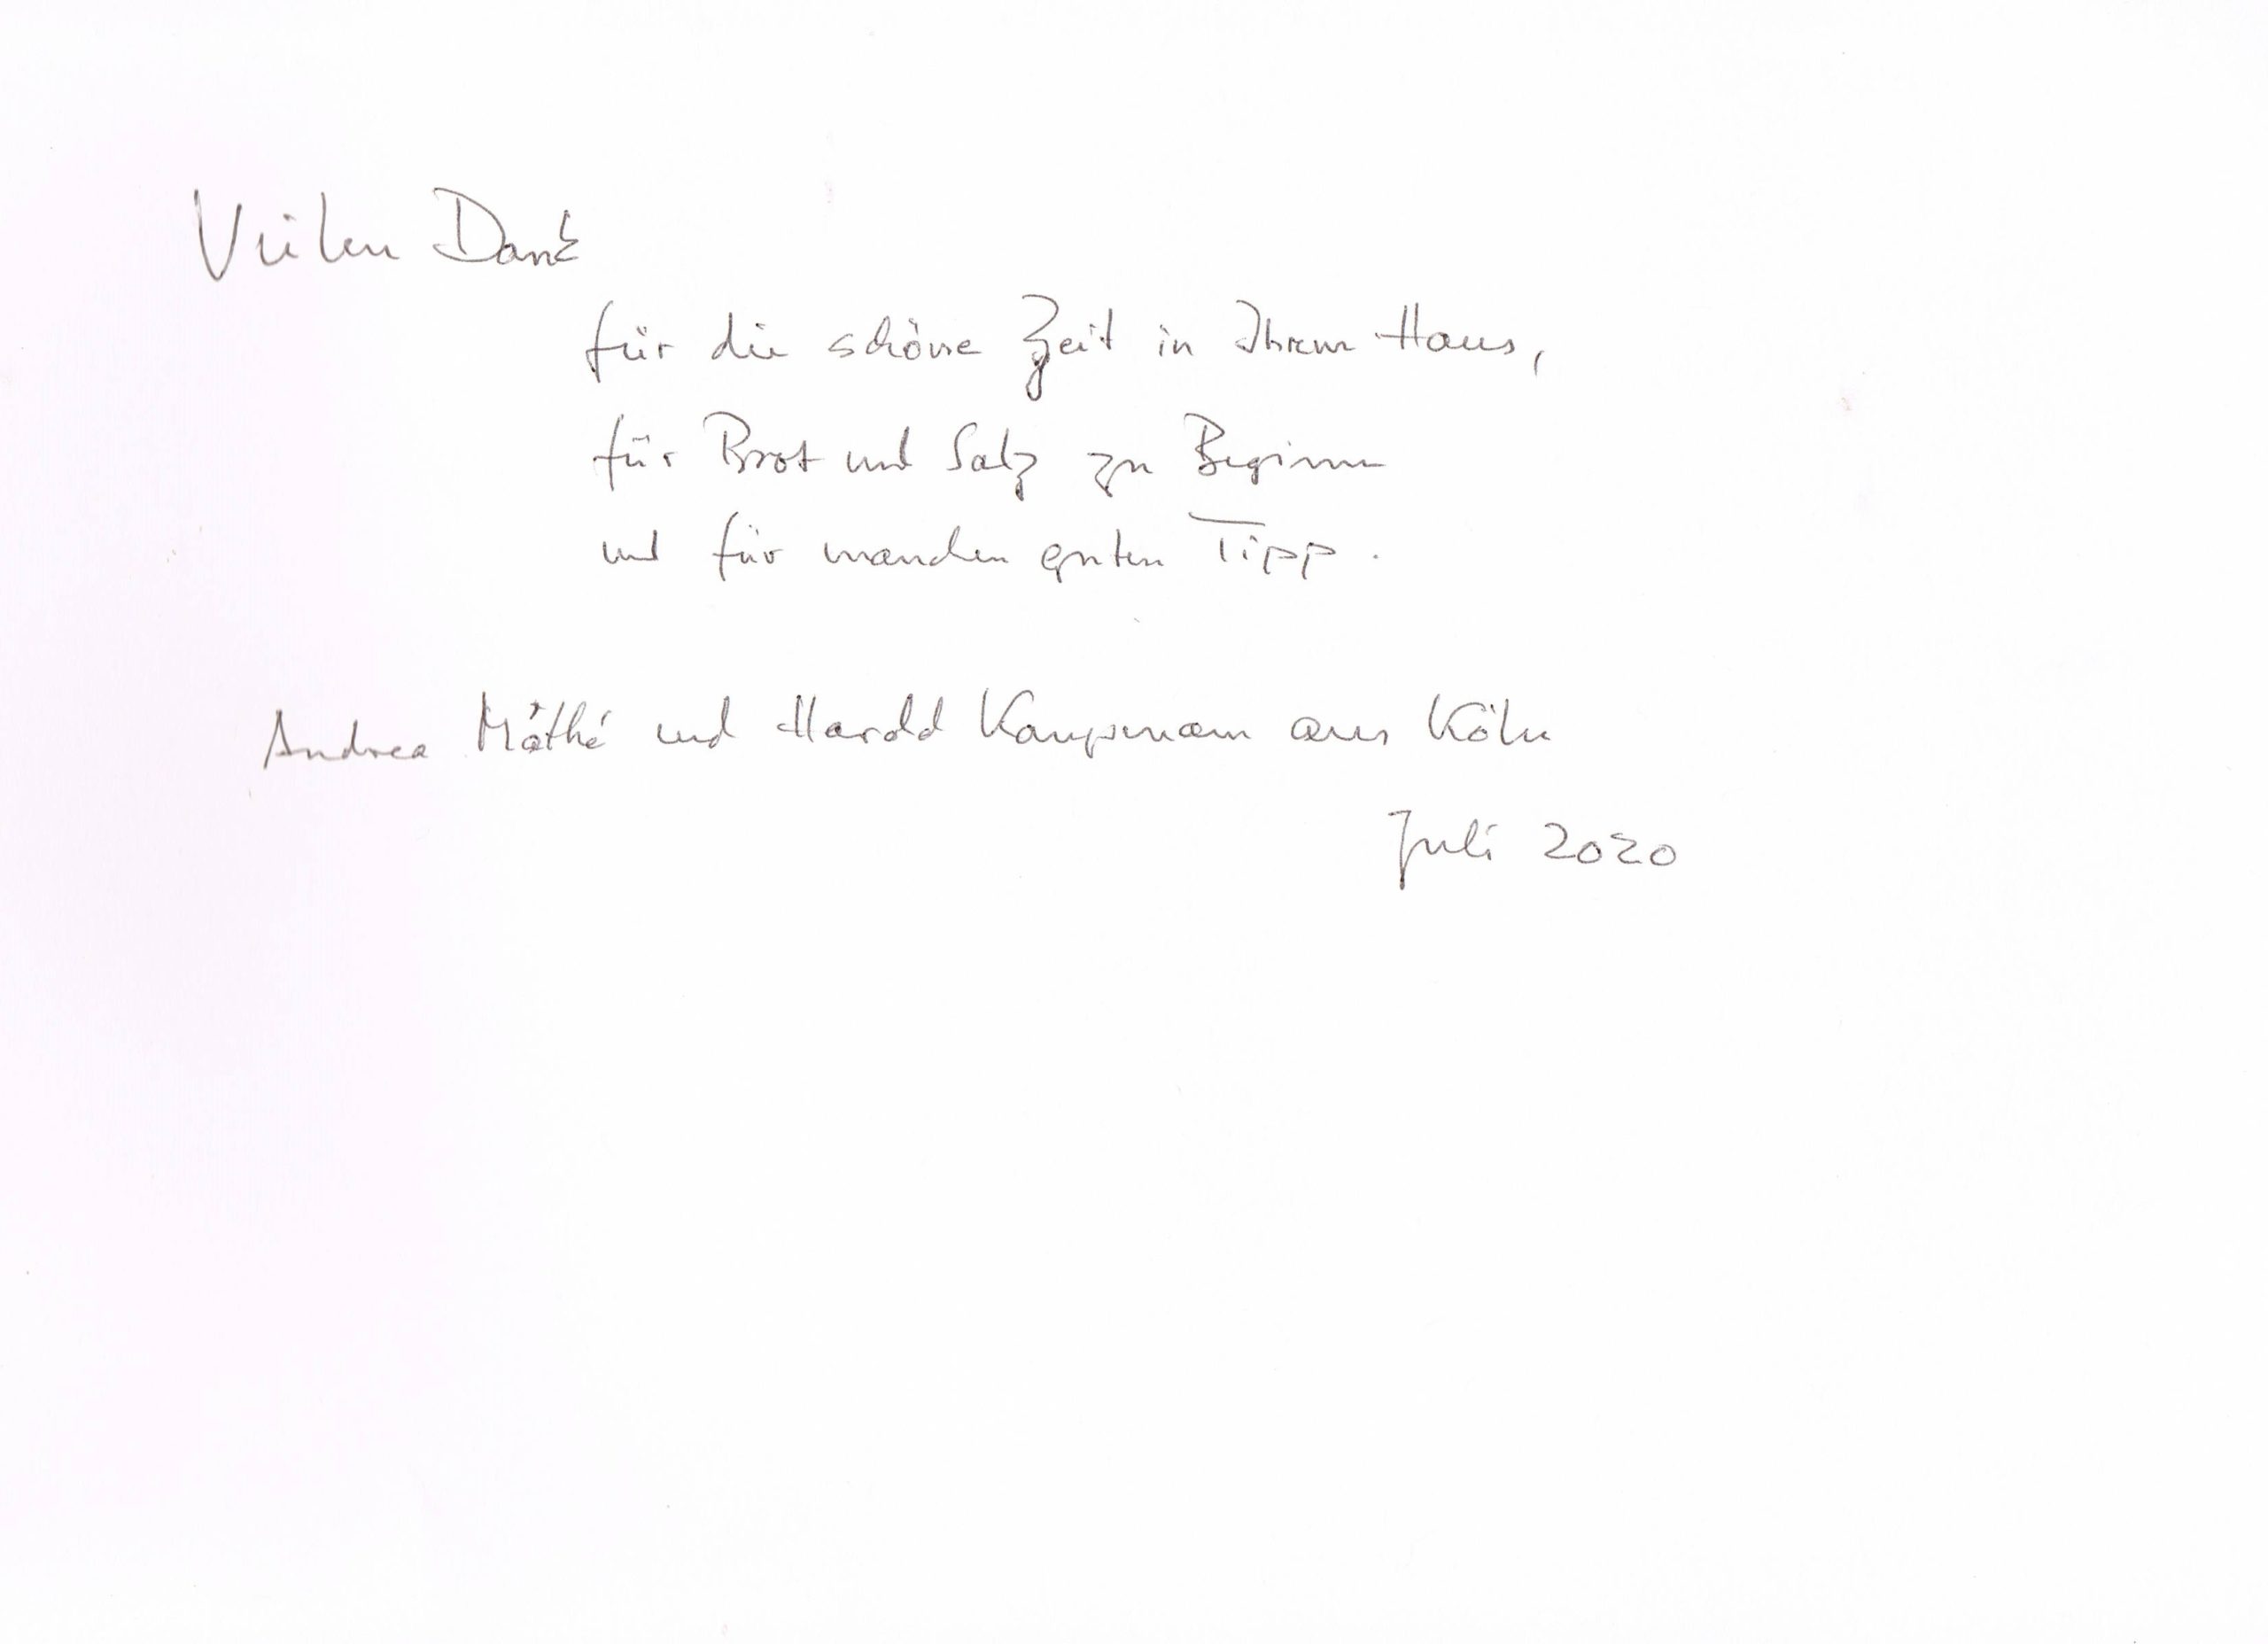 Vielen Dank
für die schöne Zeit in Ihrem Haus,
für Brot und Salz zu Beginn
und für manchen guten Tipp.
Andrea und Harald aus Köln
Juli 2020